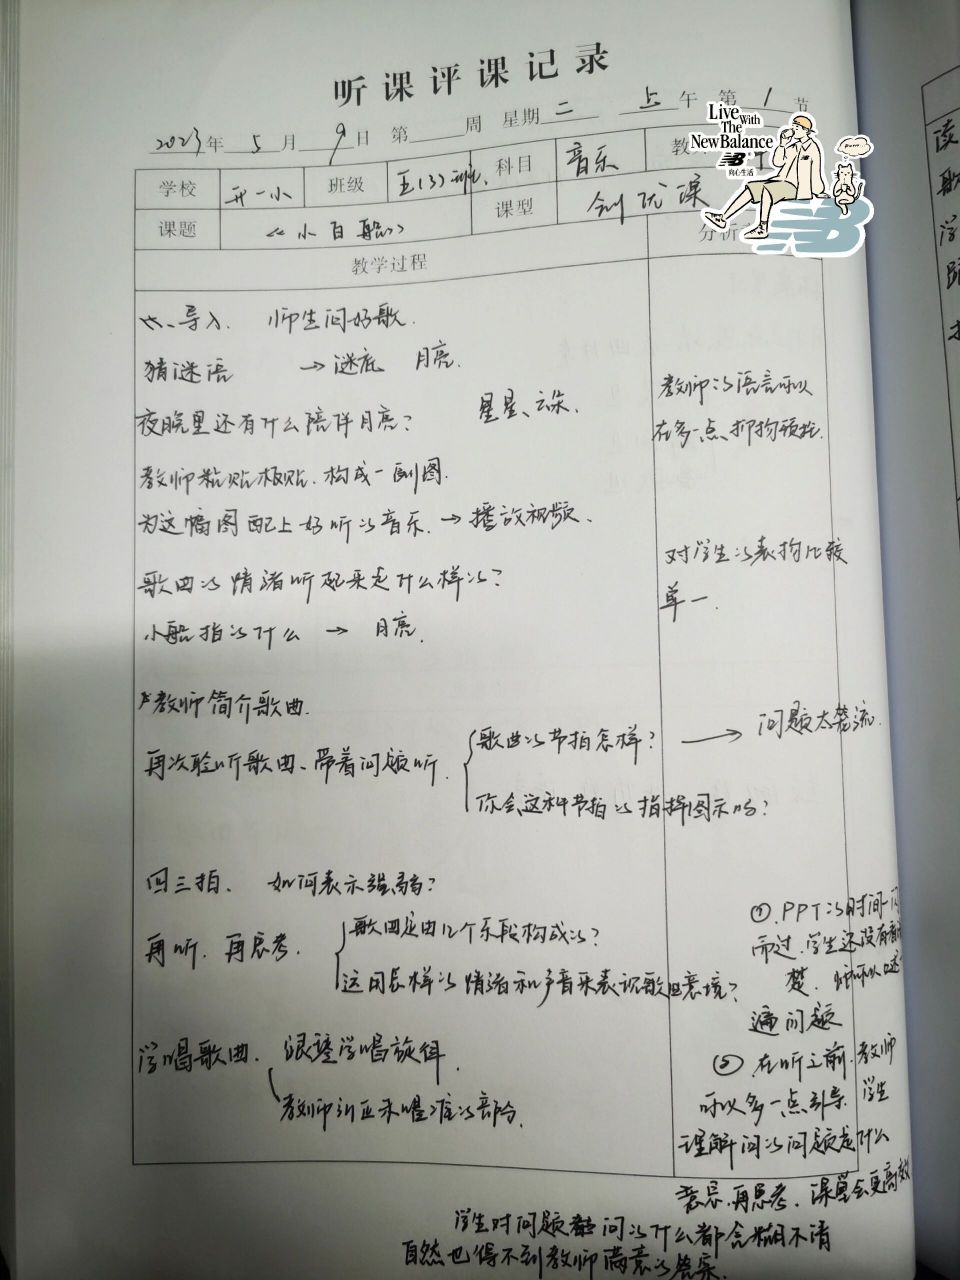 听课评课记录
2023年 5月 9日 第 周 星期 二 上午 第 1 节
学校 开一小 班级 五(3)班 科目 音乐 教
课题 《小白船》 课型 创优课
教学过程 分析
一、导入. 师生问好歌.
猜谜语 → 谜底 月亮.
夜晚里还有什么陪伴月亮? 星星、云朵.
教师粘贴板贴. 构成一副图.
为这幅图配上好听的音乐. → 播放视频.
歌曲的情绪听起来是什么样的?
小船指的什么 → 月亮.
教师的语言可以
在多一点、抑扬顿挫.
对学生的表扬比较
单一.
教师简介歌曲.
再次聆听歌曲、带着问题听.
歌曲的节拍怎样? → 问题太笼统.
你会这种节拍的指挥图示吗?
四三拍、 如何表示强弱?
再听、再思考、
歌曲是由几个乐段构成的?
这用怎样的情绪和声音来表现歌曲意境?
学唱歌曲. 跟琴学唱旋律.
教师纠正未唱准的部分.
①.PPT的时间一闪
而过. 学生还没有看清
楚.
遍问题
② 在听之前. 教师
可以多一点引导. 学生
理解问的问题是什么
意思.再思考. 课堂会更高效
学生对问题都问的什么都含糊不清
自然也得不到教师满意的答案.
Live With
The
New Balance
向心生活